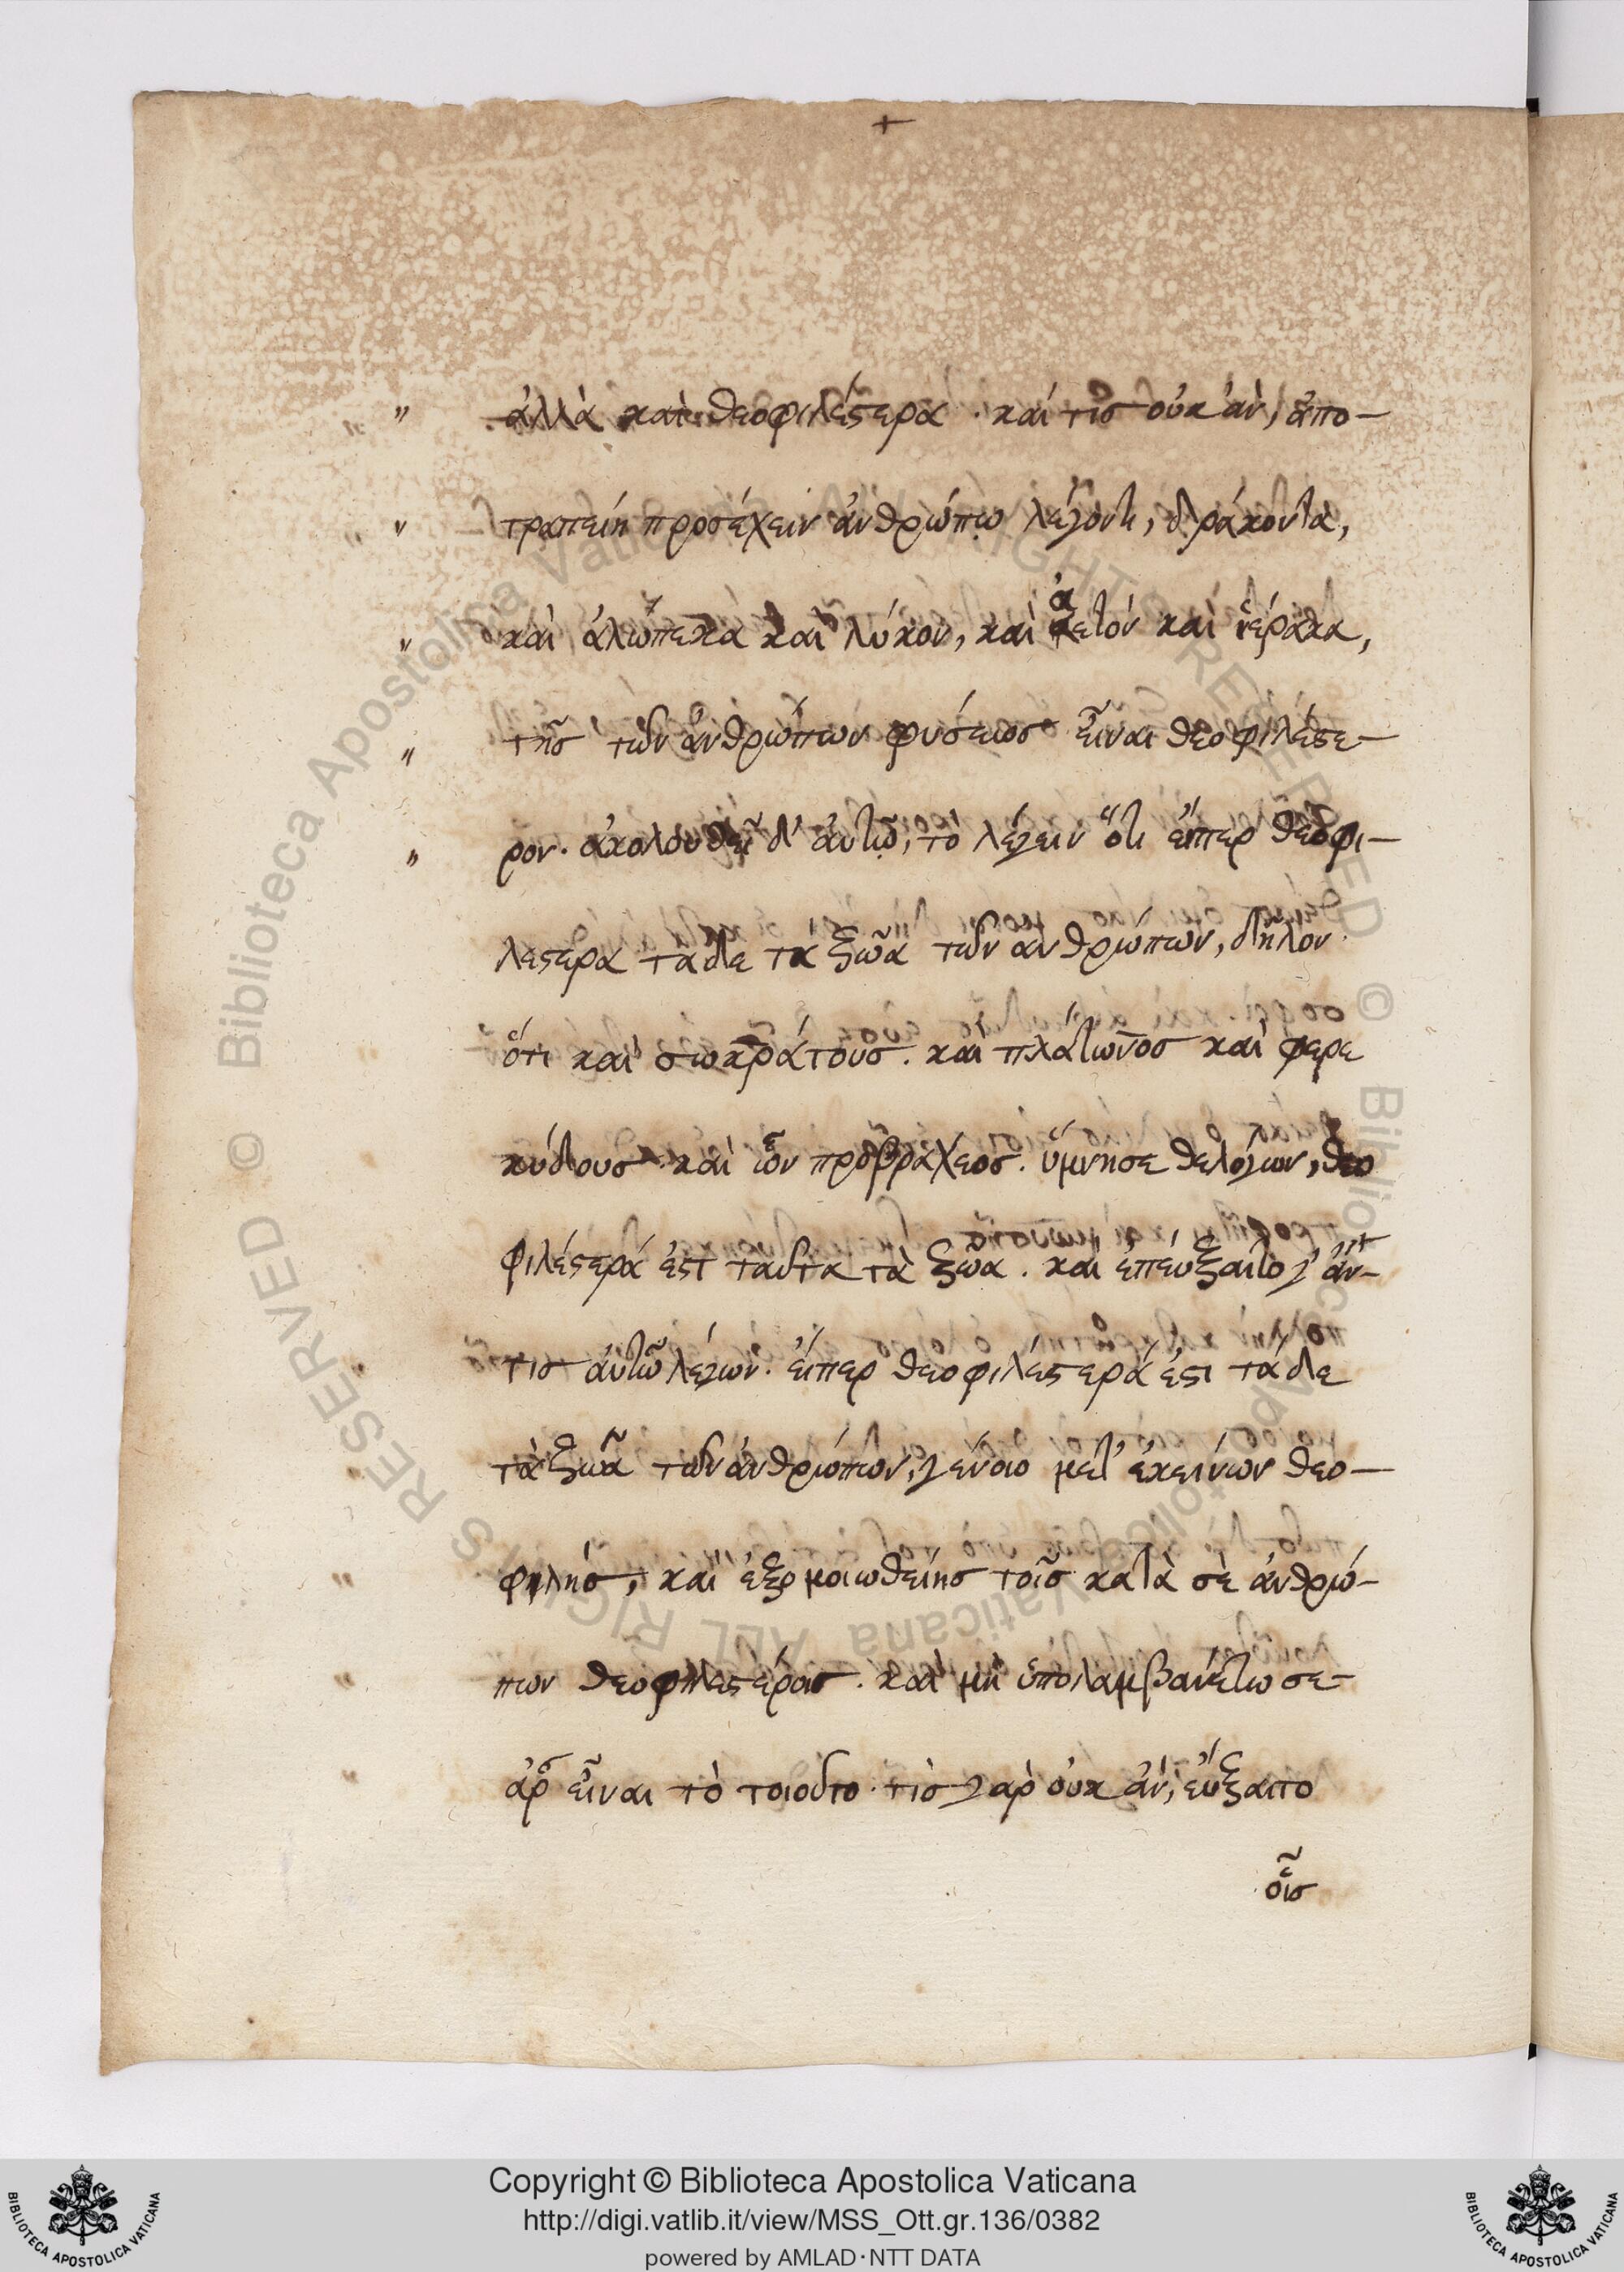 +
" ἀλλὰ καὶ θεοφιλέστερα. καί τις οὐκ ἂν, ἀπο-
" τραπείη προσέχειν ἀνθρώπῳ λέγοντι, δράκοντα,
" καὶ ἀλώπεκα καὶ λύκον, καὶ ἀετόν καὶ ἱέρακα,
" τῆς τῶν ἀνθρώπων φύσεως εἶναι θεοφιλέστε-
" ρον. ἀκολουθεῖ δ' ἀυτῷ, τὸ λέγειν ὅτι εἴπερ θεοφι-
λεστερα τάδε τὰ ζῶα τῶν ἀνθρώπων, δῆλον
ὅτι καὶ σωκράτους. καὶ πλάτωνος καὶ φερε
κύδους. καὶ ὧν προβραχέος. ὕμνησε θελόγων, θεο
φιλέστερά ἐστ ταῦτα τὰ ζῶα. καὶ ἐπεύξαιτο γ' ἄν-
τις ἀυτῶ λέγων. εἴπερ θεοφιλέστερά ἐστι τάδε
τὰ ζῶα τῶν ἀνθρώπων, γένοιο μετ' ἐκείνων θεο-
φιλής, καὶ ἐξομοιωθείης τοῖς κατὰ σὲ ἀνθρώ-
πων θεοφιλεστέροις. καὶ μὴ ὑπολαμβανέτω σε-
ἀρ εἶναι τὸ τοιοῦτο. τὶς γὰρ οὐκ ἂν, εὔξαιτο
οἷς
Copyright © Biblioteca Apostolica Vaticana
http://digi.vatlib.it/view/MSS_Ott.gr.136/0382
powered by AMLAD · NTT DATA
BIBLIOTECA APOSTOLICA VATICANA
BIBLIOTECA APOSTOLICA VATICANA